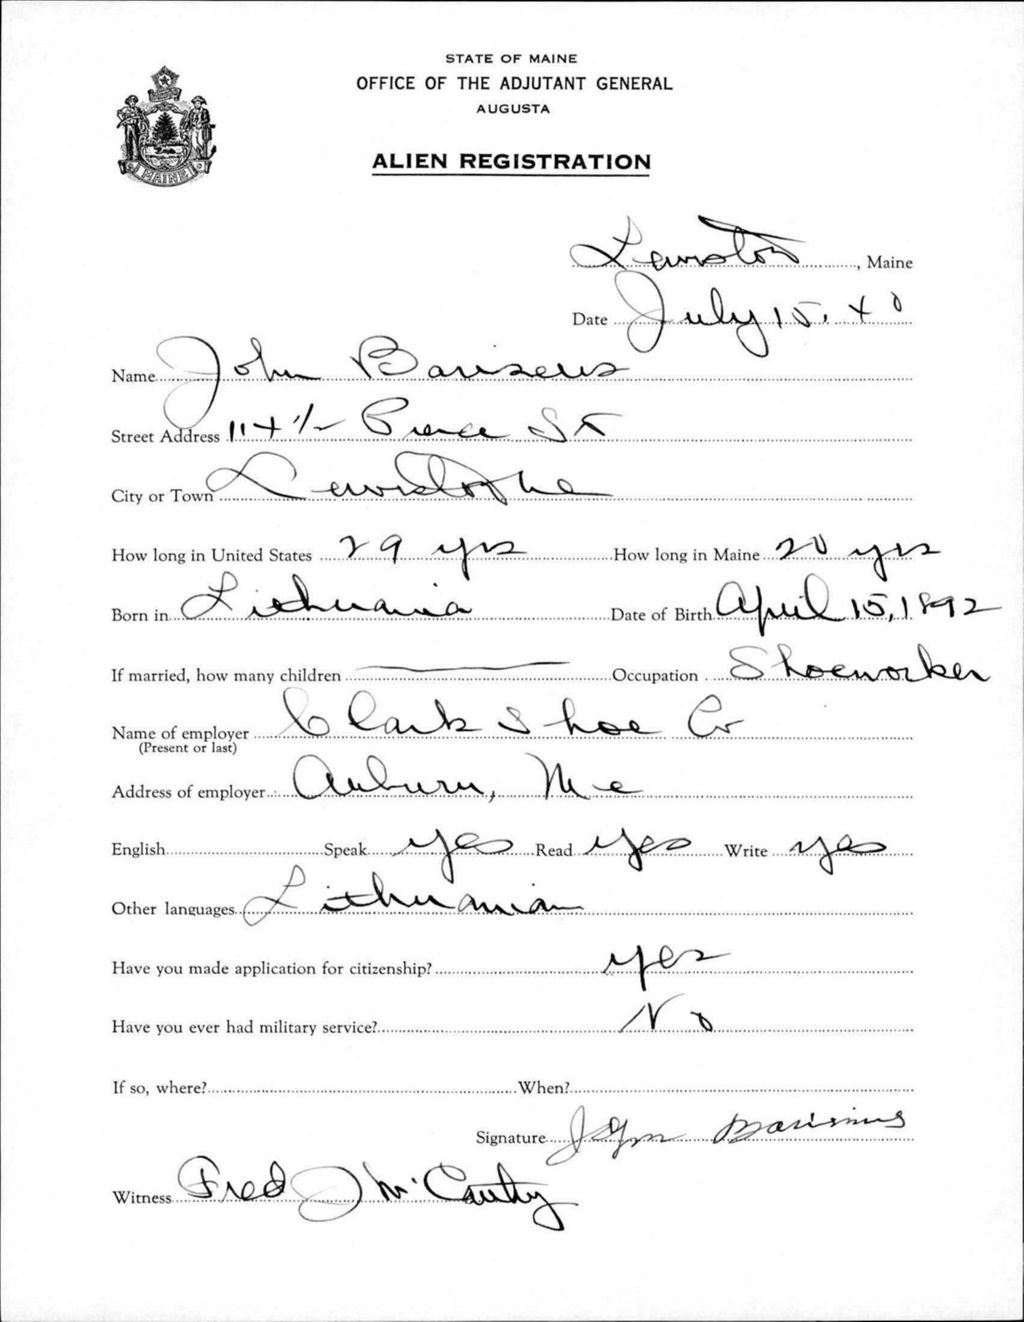 STATE OF MAINE
OFFICE OF THE ADJUTANT GENERAL
AUGUSTA
MAINE
ALIEN REGISTRATION
Lewiston, Maine
Date July 15, 40
Name John
Street Address 114 1/2 Pierce St
City or Town Lewiston Me
How long in United States 29 yrs How long in Maine 20 yrs
Born in Lithuania Date of Birth April 15, 1892
If married, how many children Occupation Shoeworker
Name of employer Clark Shoe Co
(Present or last)
Address of employer Auburn, Me
English Speak yes Read yes Write yes
Other languages Lithuanian
Have you made application for citizenship? yes
Have you ever had military service? No
If so, where? When?
Signature John
Witness Fred J McCarthy